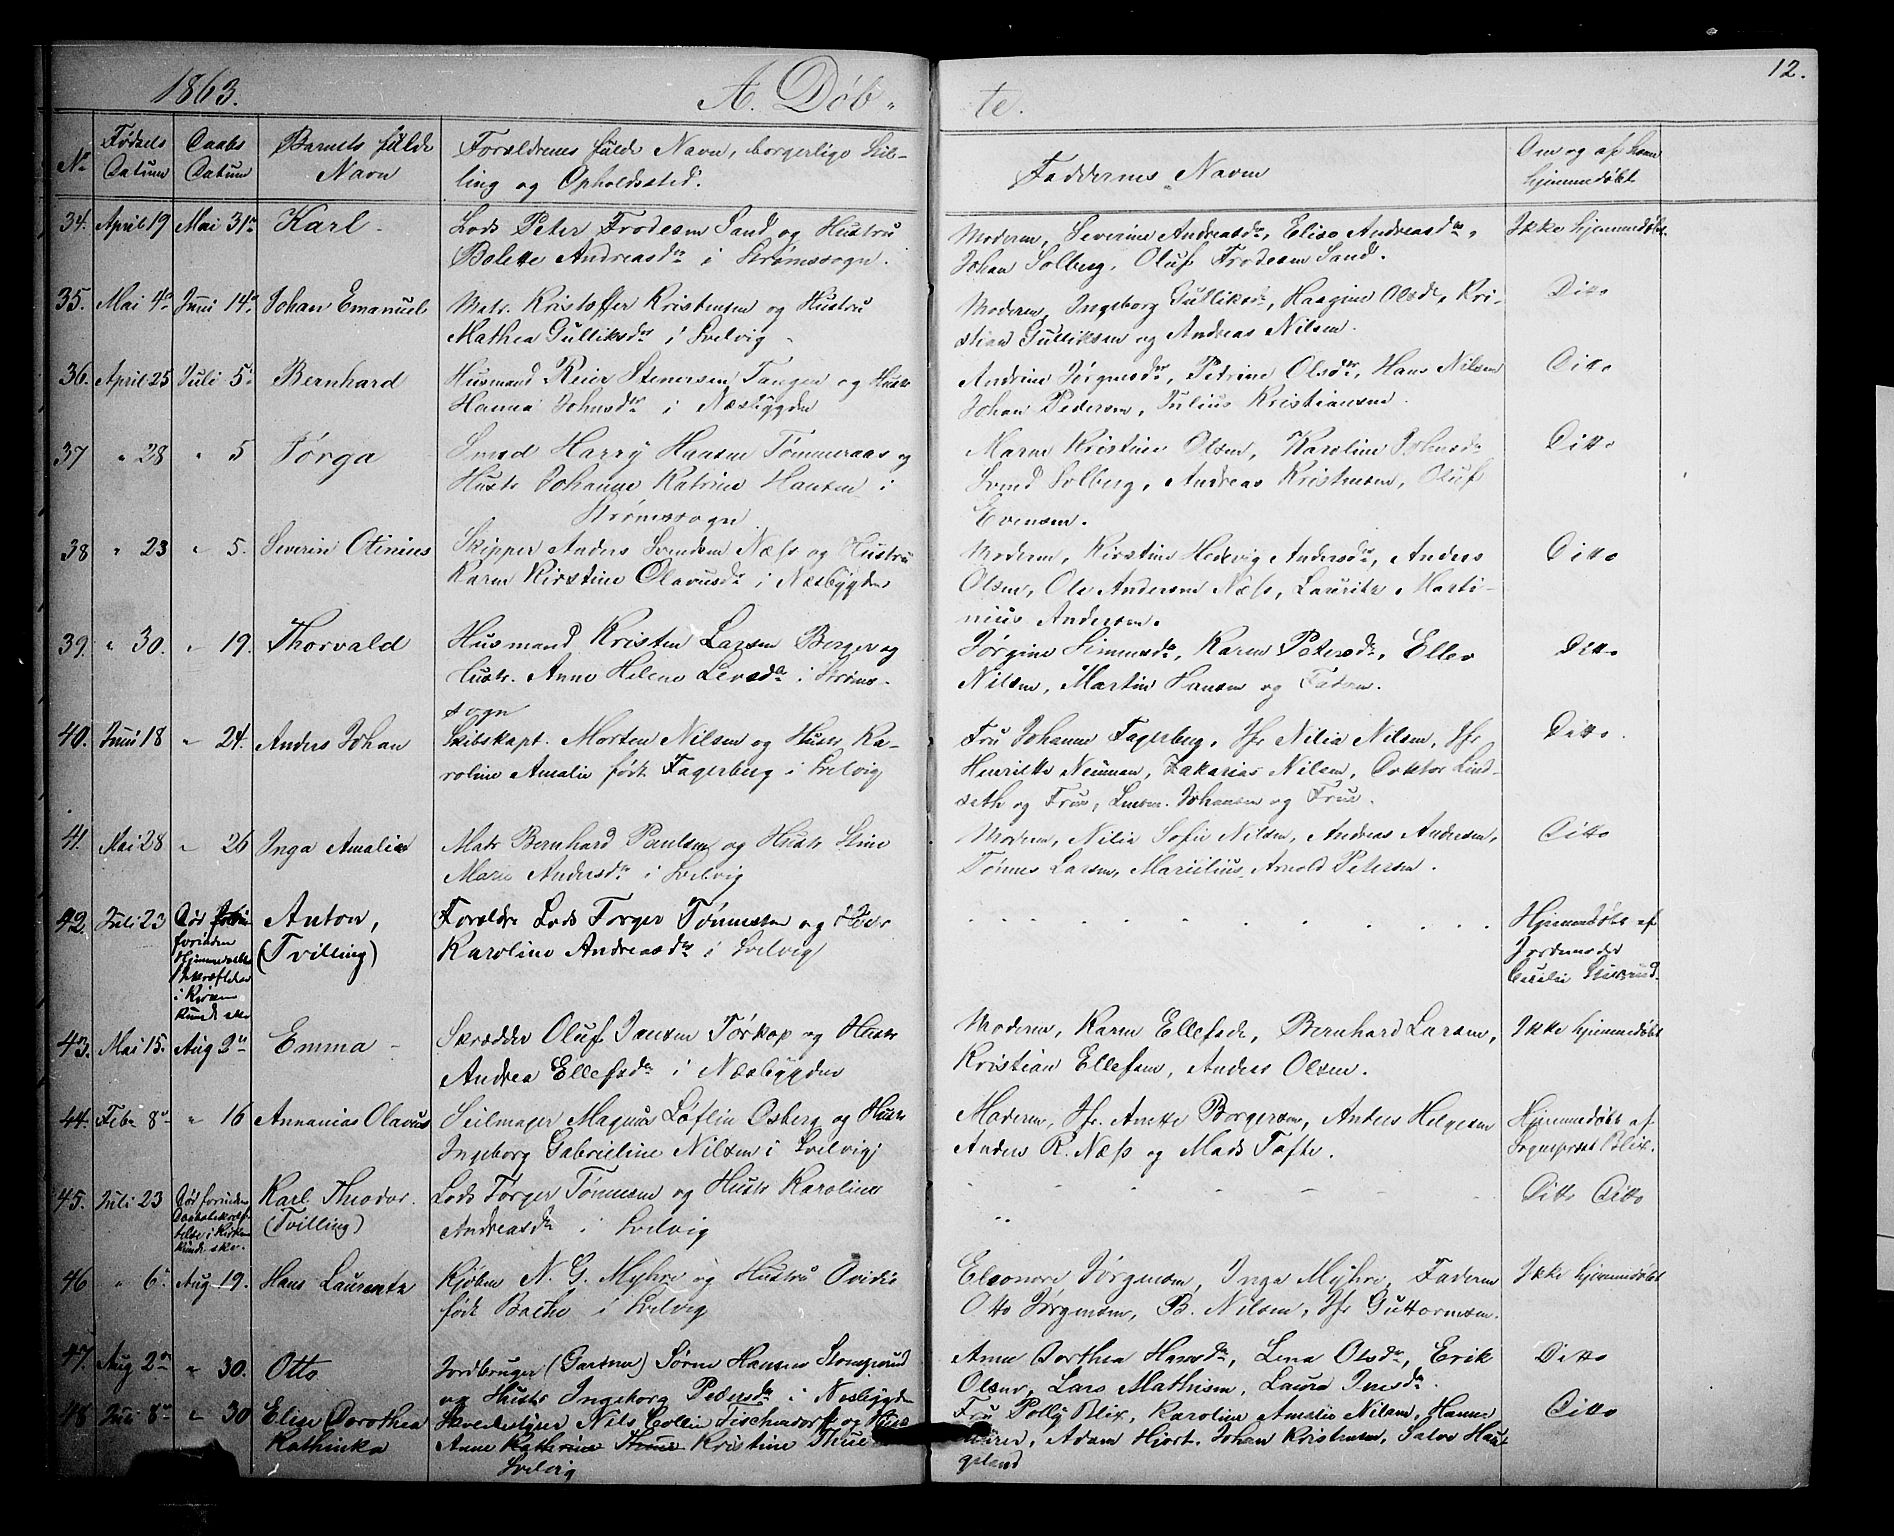 1863. A. Døb- te. 12.
No Fødsels Datum Daabs Datum Barnets fulde Navn Forældrenes fulde Navn, borgerlige Stilling og Opholdssted. Faddernes Navn Om og af hvem hjemmedøbt
34. April 19 Mai 31te Karl Lods Peter Frodesen Sand og Hustru Moderen, Severine Andreasdr, Elise Andreasdr, Ikke hjemmedøbt
Bolette Andreasdr i Strømssogn. Johan Solberg, Oluf Frodesen Sand.
35. Mai 4de Juni 14de Johan Emanuel Matr. Kristoffer Kristensen og Hustru Moderen, Ingeborg Gulliksdr, Haagine Olsdr, Kri- Ditto
Mathea Gulliksdr i Svelvig stian Gulliksen og Andreas Nilsen.
36. April 25 Juli 5te Bernhard Husmand Reier Stenersen Tangen og Hustr Andrine Jørgensdr, Petrine Olsdr, Hans Nilsen Ditto
Hanna Johnsdr i Næsbygden Johan Pedersen, Julius Kristiansen.
37 " 28 " 5 Torga Smed Harry Hansen Tømmeraas og Maren Kristine Olsen, Karoline Johnsdr Ditto
Hustr Johanne Katrine Hansen i Svend Solberg, Andreas Kristensen, Oluf
Strømssogn Evensen.
38 " 23 " 5. Severin Otinius Skipper Anders Svendsen Næss og Hustru Moderen, Kirstine Hedevig Andersdr, Anders Ditto
Karen Kirstine Olavusdr i Næsbygden Olsen, Ole Andersen Næss, Lauritz Marti-
nius Andersen.
39. " 30. " 19. Thorvald Husmand Kristen Larsen Berger og Jørgine Simensdr, Karen Petersdr, Ellev Ditto
Hustr. Anne Helene Leversdr i Strøms- Nilsen, Martin Hansen og Faderen.
sogn
40. Juni 18 " 24. Anders Johan Skibskapt. Morten Nilsen og Hustr Ka- Fru Johanne Fagerberg, Jfr Nilia Nilsen, Jfr Ditto.
roline Amalie født Fagerberg i Svelvig Henriette Neuman, Zakarias Nilsen, Doktor Lind-
seth og Frue, Johansen og Frue.
41. Mai 28 " 26 Inga Amalie Matr Bernhard Paulsen og Hustr Stine Moderen, Nilia Sofie Nilsen, Andreas Andersen, Ditto
Marie Andersdr i Svelvig Tønnes Larsen, Marielius Arnold Petersen.
42. Juli 23 Død forinden Hjemmedaaben Bekræftelse i Kirken kunde ske Anton, Forældre Lods Torger Tønnesen og Hustr Hjemmedøbt af
(Tvilling) Karoline Andreasdr i Svelvig Jordemoder
Cecilie
43. Mai 15. Aug 2den Emma Skrædder Oluf Jansen Torkop og Hustr Moderen, Karen Ellefsdr, Bernhard Larsen, Ikke hjemmedøbt
Andrea Ellefsdr i Næsbygden Kristian Ellefsen, Anders Olsen.
44. Febr 8de " 16 Annanias Olavus Seilmager Magnus Løflin Osberg og Hustr Moderen, Jfr. Anette Borgersen, Anders Helgesen Hjemmedøbt af
Ingeborg Gabrieline Nilsen i Svelvig Anders R. Næss og Mads Tofte. Sogneprest Blix.
45. Juli 23 Død forinden Daabsbekræftelse i Kirken kunde ske. Karl Theodor. Lods Torger Tønnesen og Hustr Karoline Ditto Ditto
(Tvilling) Andreasdr i Svelvig
46 " 6te Aug 19. Hans Laurentz Kjøbm N. G. Myhre og Hustru Ovidia Eleonore Jørgensen, Inga Myhre, Faderen Ikke hjemmedøbt
født Bache i Svelvig Otto Jørgensen, B. Nilsen, Jfr Guttormsen.
47. Aug 2den " 30. Otto Jordbruger (Gartner) Sørn Hansen Anne Dorthea Hansdr, Lena Olsdr, Erik Ditto
og Hustr Ingeborg Pedersdr i Nesbygden Olsen, Lars Mathisen, Laura Jensdr.
48 Juni 8de " 30 Elise Dorothea Nils Collin Tischendorf og Hust Fru Polly Blix, Karoline Amalie Nilsen, Hanna Ditto
Kathinka Anne Kathrine Kristine Thue Adam Hjort, Johan Kristensen, Salve Hau-
Svelvig geland